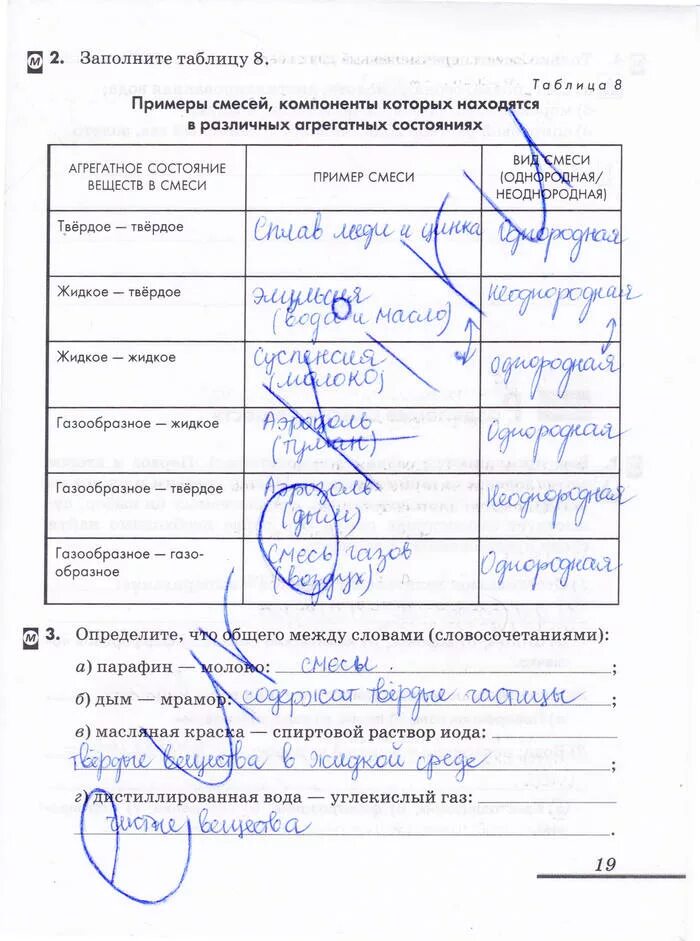 м 2. Заполните таблицу 8.
Таблица 8
Примеры смесей, компоненты которых находятся
в различных агрегатных состояниях
АГРЕГАТНОЕ СОСТОЯНИЕ
ВЕЩЕСТВ В СМЕСИ
ПРИМЕР СМЕСИ
ВИД СМЕСИ
(ОДНОРОДНАЯ/
НЕОДНОРОДНАЯ)
Твёрдое — твёрдое
Сплав меди и цинка
Однородная
Жидкое — твёрдое
Эмульсия
(вода и масло)
Неоднородная
Жидкое — жидкое
Суспензия
(молоко)
Однородная
Газообразное — жидкое
Аэрозоль
(туман)
Однородная
Газообразное — твёрдое
Аэрозоль
(дым)
Неоднородная
Газообразное — газо-
образное
Смесь газов
(воздух)
Однородная
м 3. Определите, что общего между словами (словосочетаниями):
а) парафин — молоко: смесы ;
б) дым — мрамор: содержат твёрдые частицы ;
в) масляная краска — спиртовой раствор иода:
твёрдые вещества в жидкой среде ;
г) дистиллированная вода — углекислый газ:
чистые вещества .
19